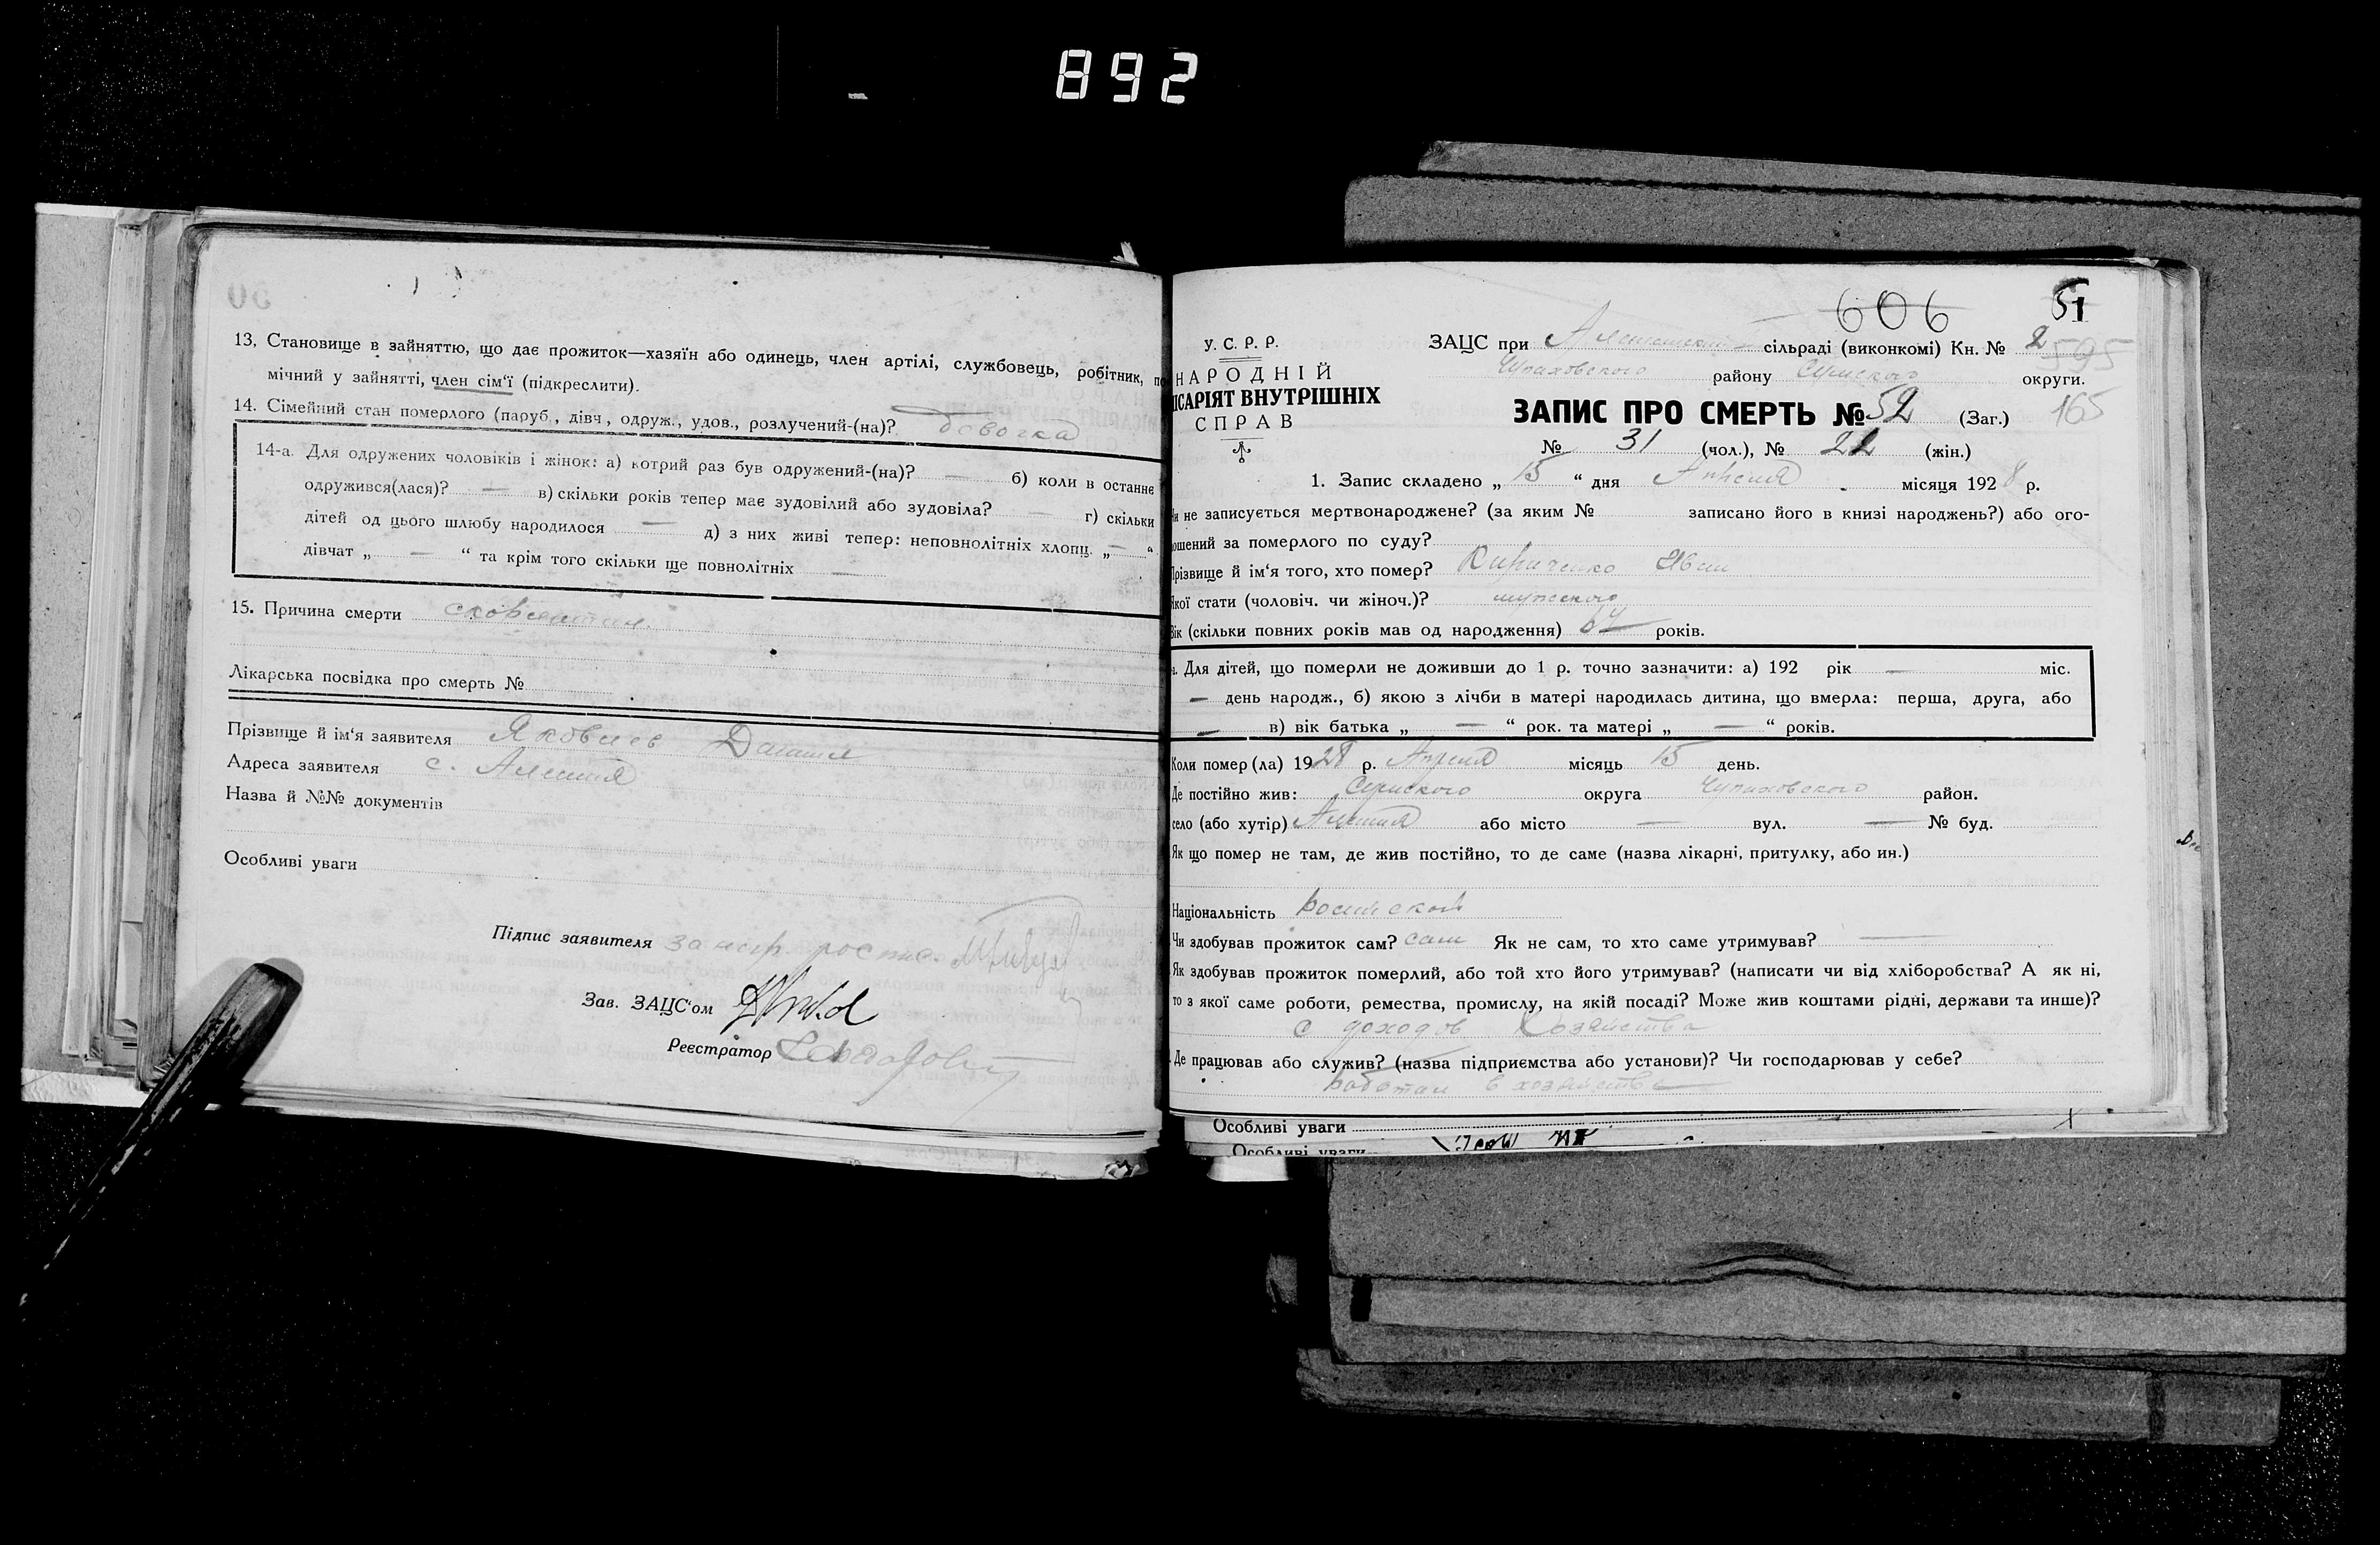 892
13. Становище в зайняттю, що дає прожиток—хазяїн або одинець, член артілі, службовець, робітник, по
мічний у зайнятті, член сім'ї (підкреслити).
14. Сімейний стан померлого (паруб., дівч., одруж., удов., розлучений-(на)? девочка
14-а. Для одружених чоловіків і жінок: а) котрий раз був одружений-(на)? — б) коли в останнє
одружився(лася)? — в) скільки років тепер має зудовілий або зудовіла? — г) скільки
дітей од цього шлюбу народилося — д) з них живі тепер: неповнолітніх хлопц. „ — “
дівчат „ — “ та крім того скільки ще повнолітніх —
15. Причина смерти
Лікарська посвідка про смерть №
Прізвище й ім'я заявителя Яковлев
Адреса заявителя с. Алешня
Назва й №№ документів
Особливі уваги
Підпис заявителя за негр.
Зав. ЗАЦС'ом
Реєстратор
606 51
У. С. Р. Р.
НАРОДНІЙ
ІСАРІЯТ ВНУТРІШНІХ
СПРАВ
ЗАЦС при сільраді (виконкомі) Кн. № 2 595
Чупаховского району Сумского округи.
ЗАПИС ПРО СМЕРТЬ № 52 (Заг.) 165
№ 31 (чол.), № 22 (жін.)
1. Запис складено „ 15 “ дня Апреля місяця 1928 р.
не записується мертвонароджене? (за яким № записано його в книзі народжень?) або ого-
ошений за померлого по суду?
Прізвище й ім'я того, хто помер? Кириченко Иван
Якої стати (чоловіч. чи жіноч.)? мужского
Вік (скільки повних років мав од народження) 64 років.
Для дітей, що померли не доживши до 1 р. точно зазначити: а) 192 рік — міс.
— день народж., б) якою з лічби в матері народилась дитина, що вмерла: перша, друга, або
— в) вік батька „ — “ рок. та матері „ — “ років.
Коли помер (ла) 1928 р. Апреля місяць 15 день.
Де постійно жив: Сумского округа Чупаховского район.
село (або хутір) Алешня або місто — вул. — № буд.
Як що помер не там, де жив постійно, то де саме (назва лікарні, притулку, або ин.)
Національність
Чи здобував прожиток сам? сам Як не сам, то хто саме утримував? —
Як здобував прожиток померлий, або той хто його утримував? (написати чи від хліборобства? А як ні,
то з якої саме роботи, ремества, промислу, на якій посаді? Може жив коштами рідні, держави та инше)?
с доходов хозяйства
Де працював або служив? (назва підприємства або установи)? Чи господарював у себе?
работал в хозяйстве
Особливі уваги
Особливі уваги